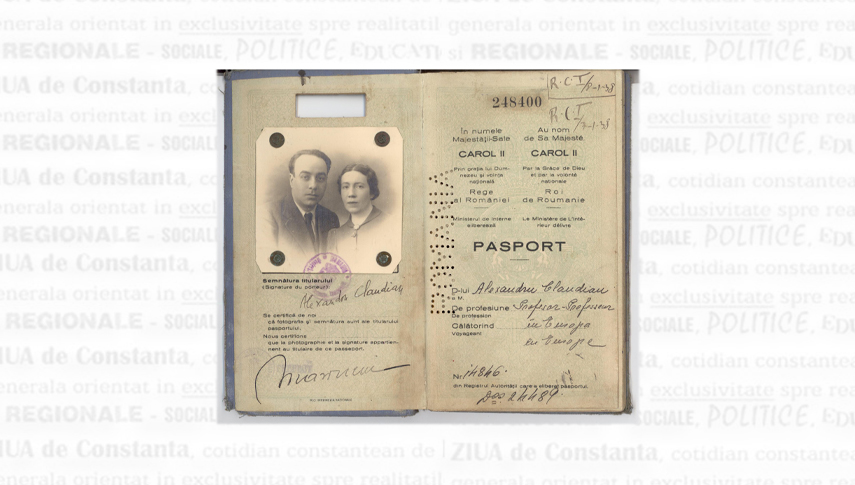 Semnătura titularului
(Signature du porteur)
Alexandru Claudian
Se certifică de noi
că fotografia și semnătura sunt ale titularului
pasportului.
Nous certifions
que la photographie et la signature appartien-
nent au titulaire de ce passeport.
248400
R.C.I
R.C.I
În numele
Majestății-Sale
CAROL II
Prin grația lui Dum-
nezeu și voința
națională
Rege
al României
Ministerul de Interne
eliberează
Au nom
de Sa Majesté
CAROL II
Par la Grâce de Dieu
et par la volonté
nationale
Roi
de Roumanie
Le Ministère de L'inté-
rieur délivre
PASPORT
ROMANIA
D-lui Alexandru Claudian
à M.
De profesiune Profesor-Professeur
De profession
Călătorind în Europa
Voyageant en Europe
Nr. 14846.
din Registrul Autorității care a eliberat pasportul.
Dos 24489
ZIUA de Constanta, cotidian constantean de
generala orientat in exclusivitate spre realitatil
REGIONALE - SOCIALE, POLITICE, EDUCATI si